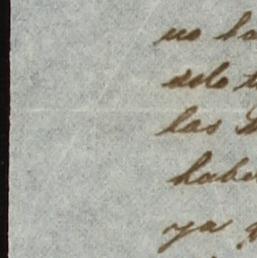 no ha
solo t
las
habe
ya